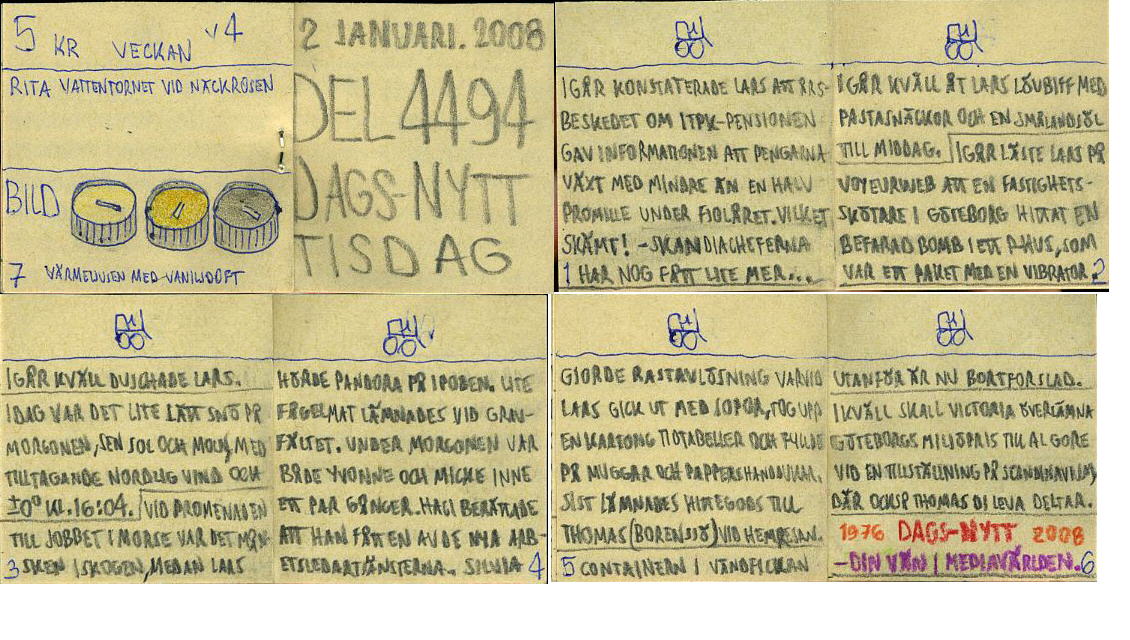 5 KR VECKAN V4
RITA VATTENTORNET VID NÄCKROSEN
BILD
7 VÄRMELJUSEN MED VANILJDOFT
2 JANUARI. 2008
DEL 4494
DAGS-NYTT
TISDAG
IGÅR KONSTATERADE LARS ATT ÅRS-
BESKEDET OM ITPK-PENSIONEN
GAV INFORMATIONEN ATT PENGARNA
VÄXT MED MINDRE ÄN EN HALV
PROMILLE UNDER FJOLÅRET. VILKET
SKÄMT! - SKANDIACHEFERNA
1 HAR NOG FÅTT LITE MER...
IGÅR KVÄLL ÅT LARS LÖVBIFF MED
PASTASNÄCKOR OCH EN SMÅLANDSÖL
TILL MIDDAG. IGÅR LÄSTE LARS PÅ
VOYEURWEB ATT EN FASTIGHETS-
SKÖTARE I GÖTEBORG HITTAT EN
BEFARAD BOMB I ETT P-HUS, SOM
VAR ETT PAKET MED EN VIBRATOR. 2
IGÅR KVÄLL DUSCHADE LARS.
IDAG VAR DET LITE LÄTT SNÖ PÅ
MORGONEN, SEN SOL OCH MOLN, MED
TILLTAGANDE NORDLIG VIND OCH
±0° KL. 16:04. VID PROMENADEN
TILL JOBBET I MORSE VAR DET MÅN-
3 SKEN I SKOGEN, MEDAN LARS
HÖRDE PANDORA PÅ IPODEN. LITE
FÅGELMAT LÄMNADES VID GRAV-
FÄLTET. UNDER MORGONEN VAR
BÅDE YVONNE OCH MICKE INNE
ETT PAR GÅNGER. HACI BERÄTTADE
ATT HAN FÅTT EN AV DE NYA ARB-
ETSLEDARTJÄNSTERNA. SILVIA 4
GJORDE RASTAVLÖSNING VARVID
LARS GICK UT MED SOPOR, TOG UPP
EN KARTONG TIDTABELLER OCH FYLLDE
PÅ MUGGAR OCH PAPPERSHANDDUKAR.
SIST LÄMNADES HITTEGODS TILL
THOMAS (BORENSJÖ) VID HEMRESAN.
5 CONTAINERN I VÄNDFICKAN
UTANFÖR ÄR NU BORTFORSLAD.
IKVÄLL SKALL VICTORIA ÖVERLÄMNA
GÖTEBORGS MILJÖPRIS TILL AL GORE
VID EN TILLSTÄLLNING PÅ SCANDINAVIUM,
DÄR OCKSÅ THOMAS DI LEVA DELTAR.
1976 DAGS-NYTT 2008
-DIN VÄN I MEDIAVÄRLDEN. 6